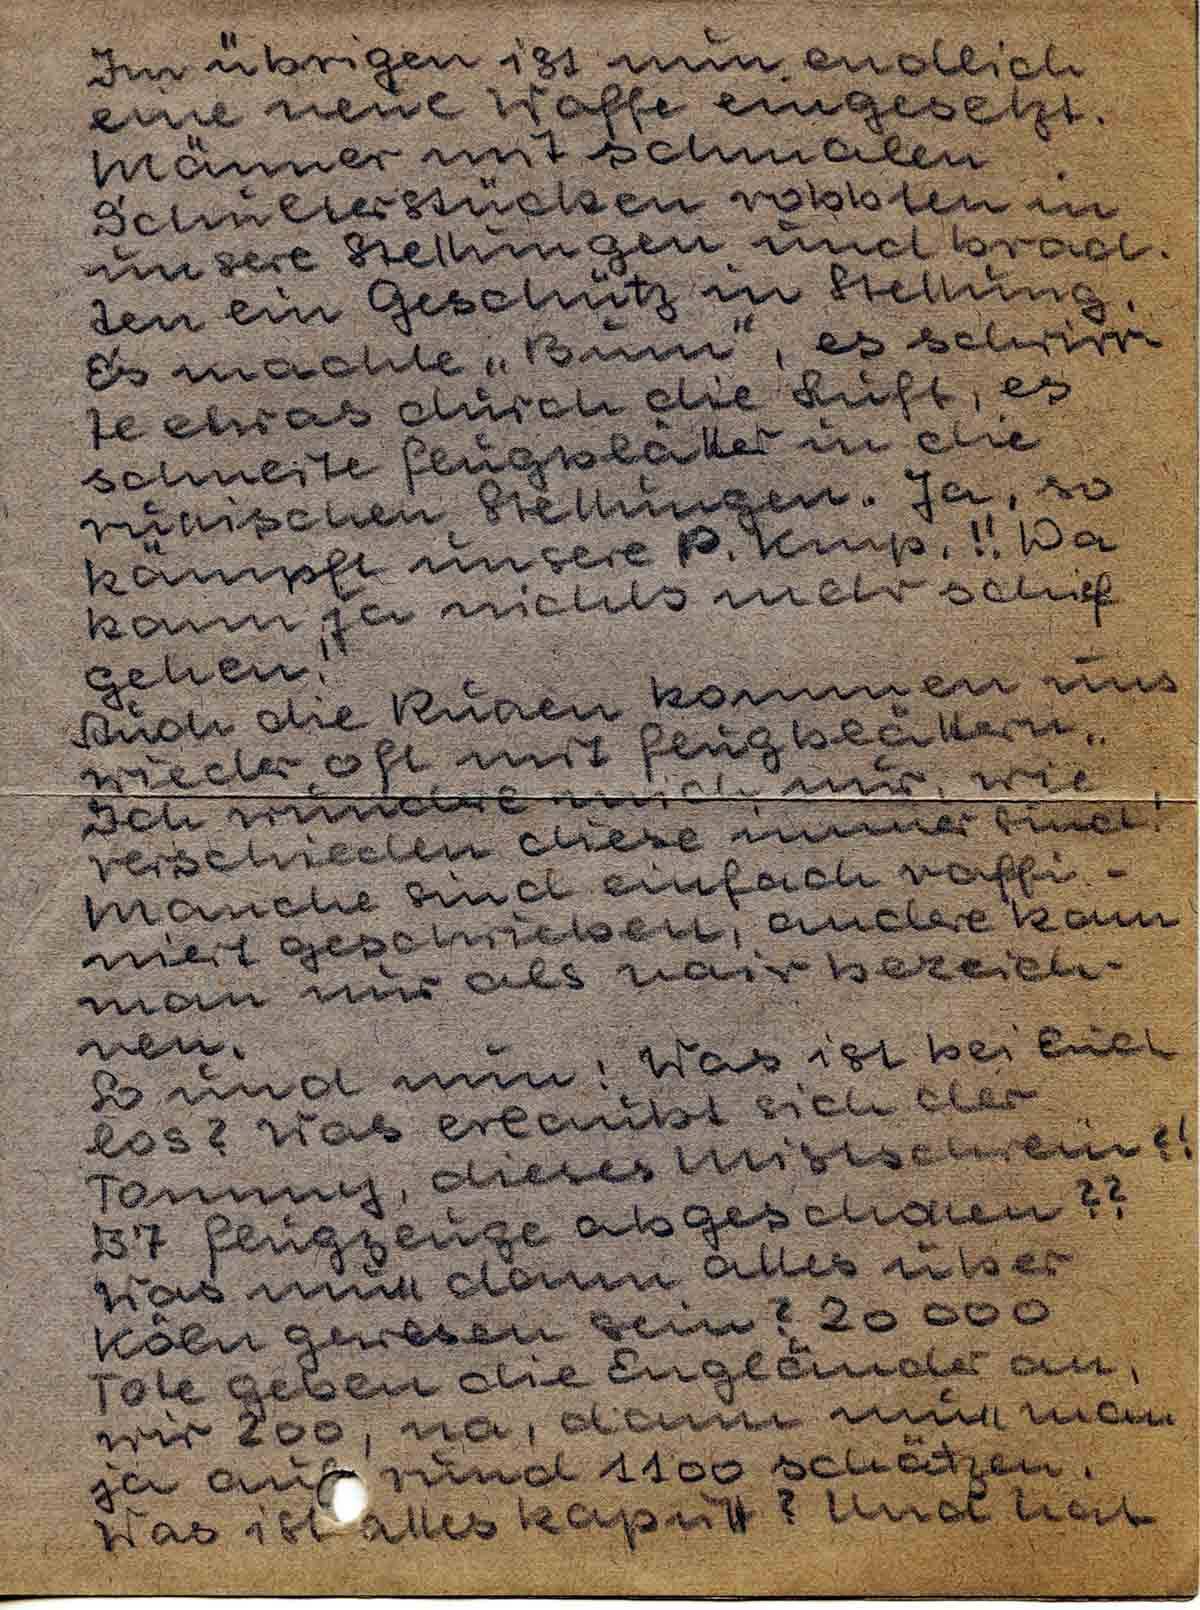 Im übrigen ist nun endlich
eine neue Waffe eingesetzt.
Männer mit schmalen
Schulterstücken robbten in
unsere Stellungen und brach-
ten ein Geschütz in Stellung.
Es machte „Bum“, es schwirr
te etwas durch die Luft, es
schneite Flugblätter in die
russischen Stellungen. Ja, so
kämpft unsere P. Kmp.!! Da
kann ja nichts mehr schief
gehen!
Auch die Russen kommen uns
wieder oft mit Flugblättern..
Ich wundere mich nur, wie
verschieden diese immer sind!
Manche sind einfach raffi-
niert geschrieben, andere kann
man nur als naiv bezeich-
nen.
So und nun: Was ist bei Euch
los? Was erlaubt sich der
Tommy, dieses Mistschwein?!
37 Flugzeuge abgeschossen??
Was muss dann alles über
Köln gewesen sein? 20 000
Tote geben die Engländer an,
wir 200, na, dann muss man
ja auf rund 1100 schätzen.
Was ist alles kaputt? Und hat